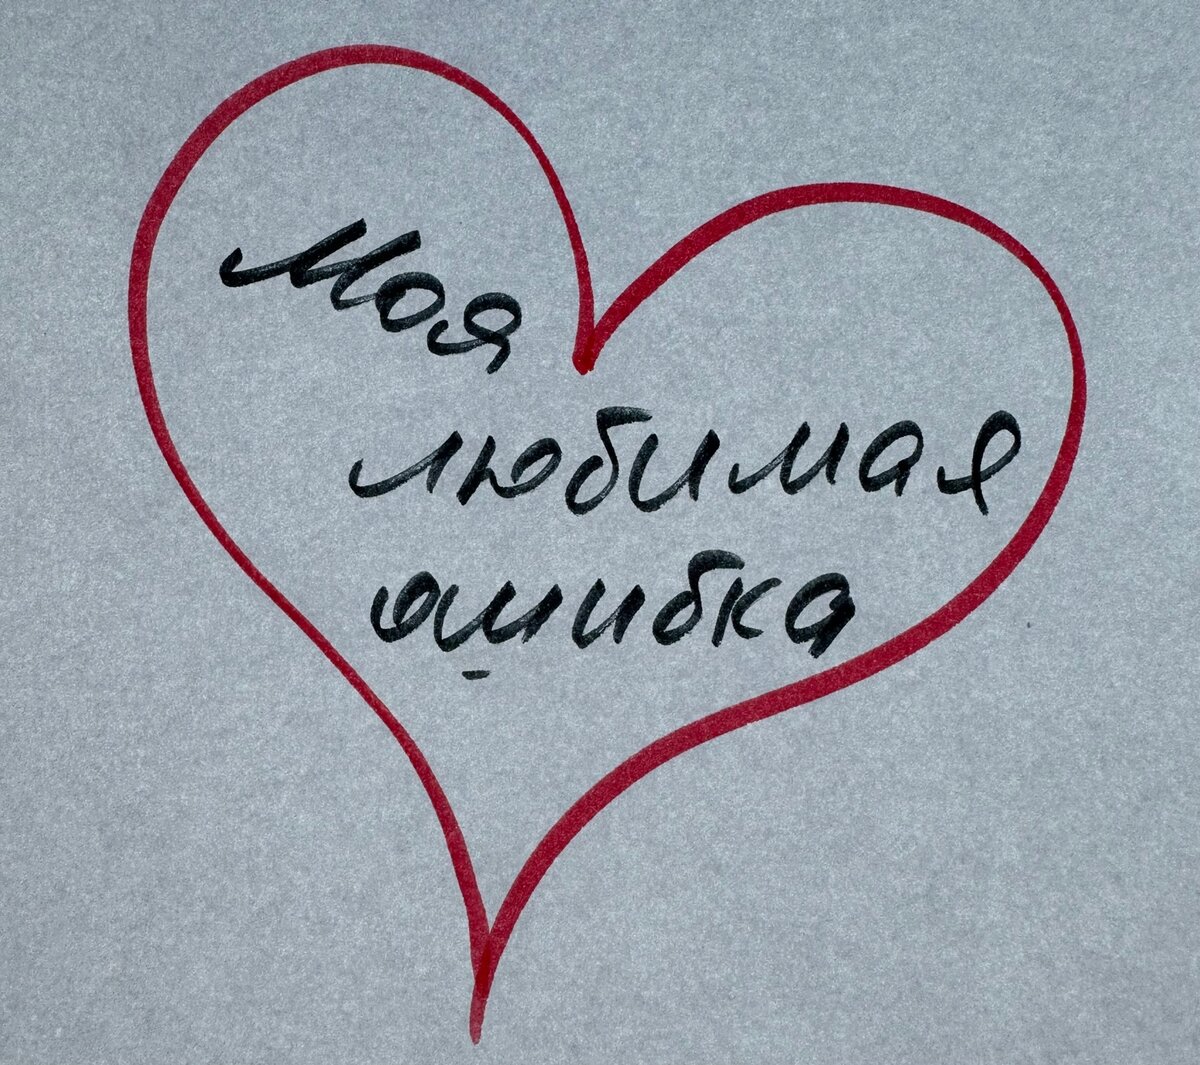 Моя
любимая
ошибка